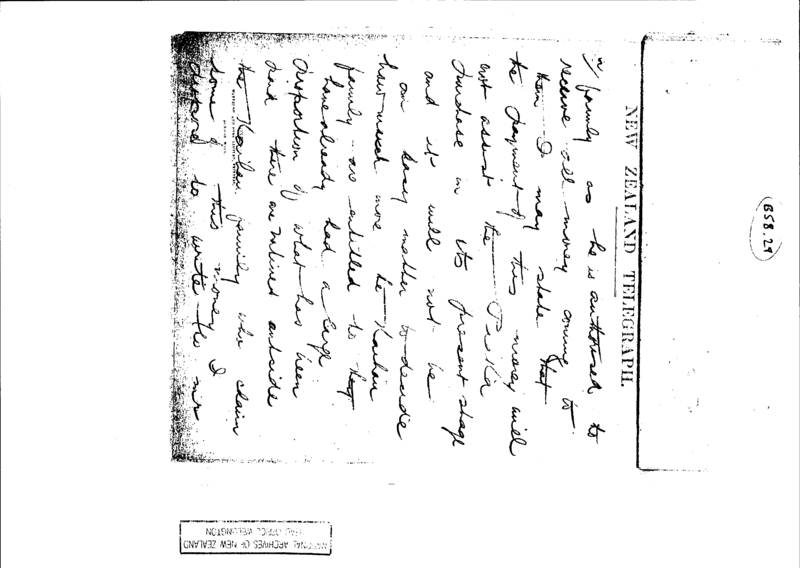 (B58.29)
NEW ZEALAND TELEGRAPH.
family as he is authorised to
receive all money coming to
them I may state that
the payment of this money will
not assist the
purchase in its present stage
and it will not be
an easy matter to decide
how much more the Kaihau
family are entitled to they
have already had a large
proportion of what has been
paid there are Natives outside
the Kaihau family who claim
some of this money I
to write
NATIONAL ARCHIVES OF NEW ZEALAND
HEAD OFFICE WELLINGTON